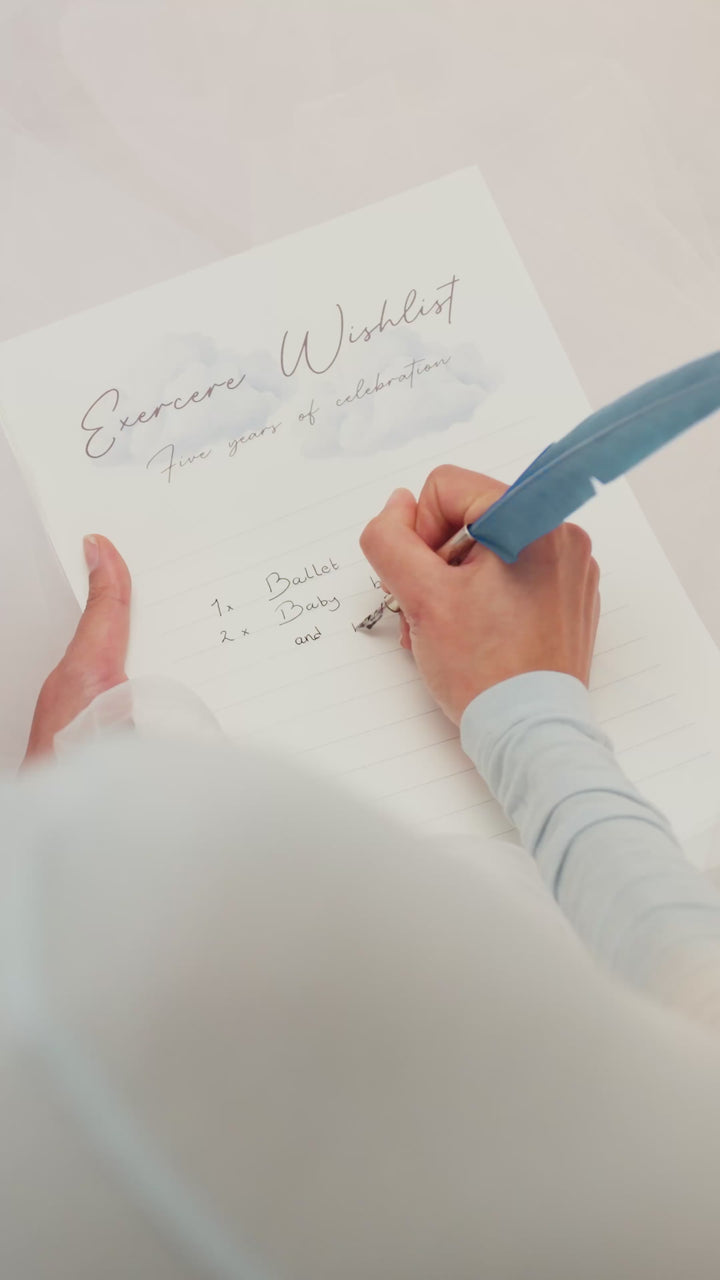 Exercere Wishlist
Five years of celebration
1x Ballet
2x Baby
and